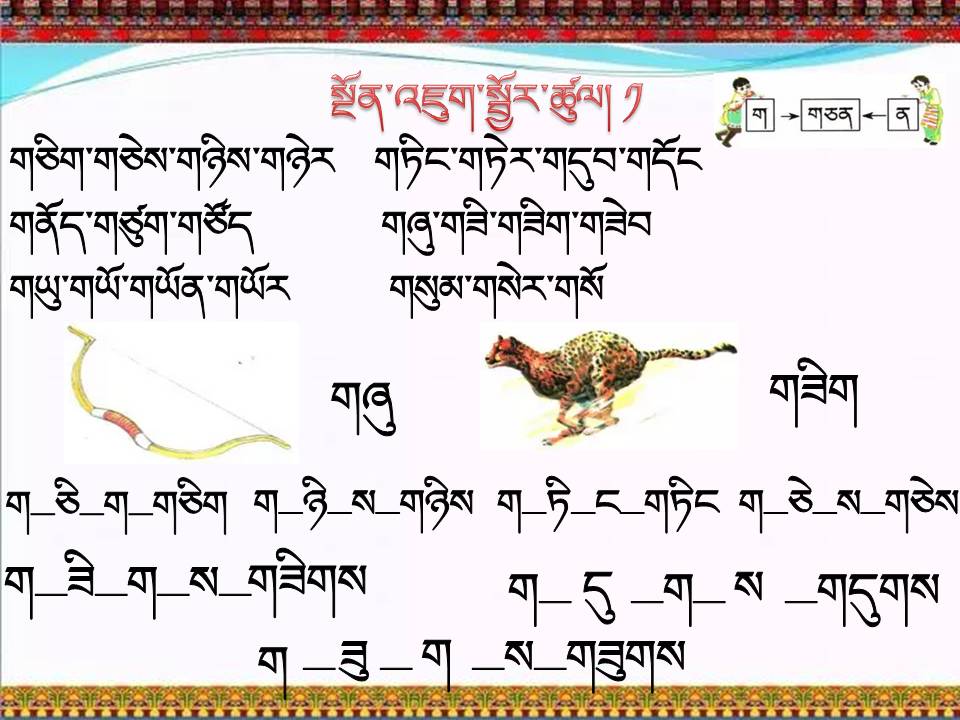 སྔོན་འཇུག་སྦྱོར་ཚུལ། ༡
ག གཅན ན
གཅིག་གཅེས་གཉིས་གཉེར གཏིང་གཏེར་གདུབ་གདོང
གནོད་གཙུག་གཙོད གཞུ་གཟི་གཟིག་གཟེབ
གཡུ་གཡོ་གཡོན་གཡོར གསུམ་གསེར་གསོ
གཞུ གཟིག
ག_ཅི_ག_གཅིག ག_ཉི_ས_གཉིས ག_ཏི_ང_གཏིང ག_ཅེ_ས_གཅེས
ག_ཟི_ག_ས_གཟིགས ག_ དུ _ག_ ས _གདུགས
ག _ཟུ _ ག _ས_གཟུགས